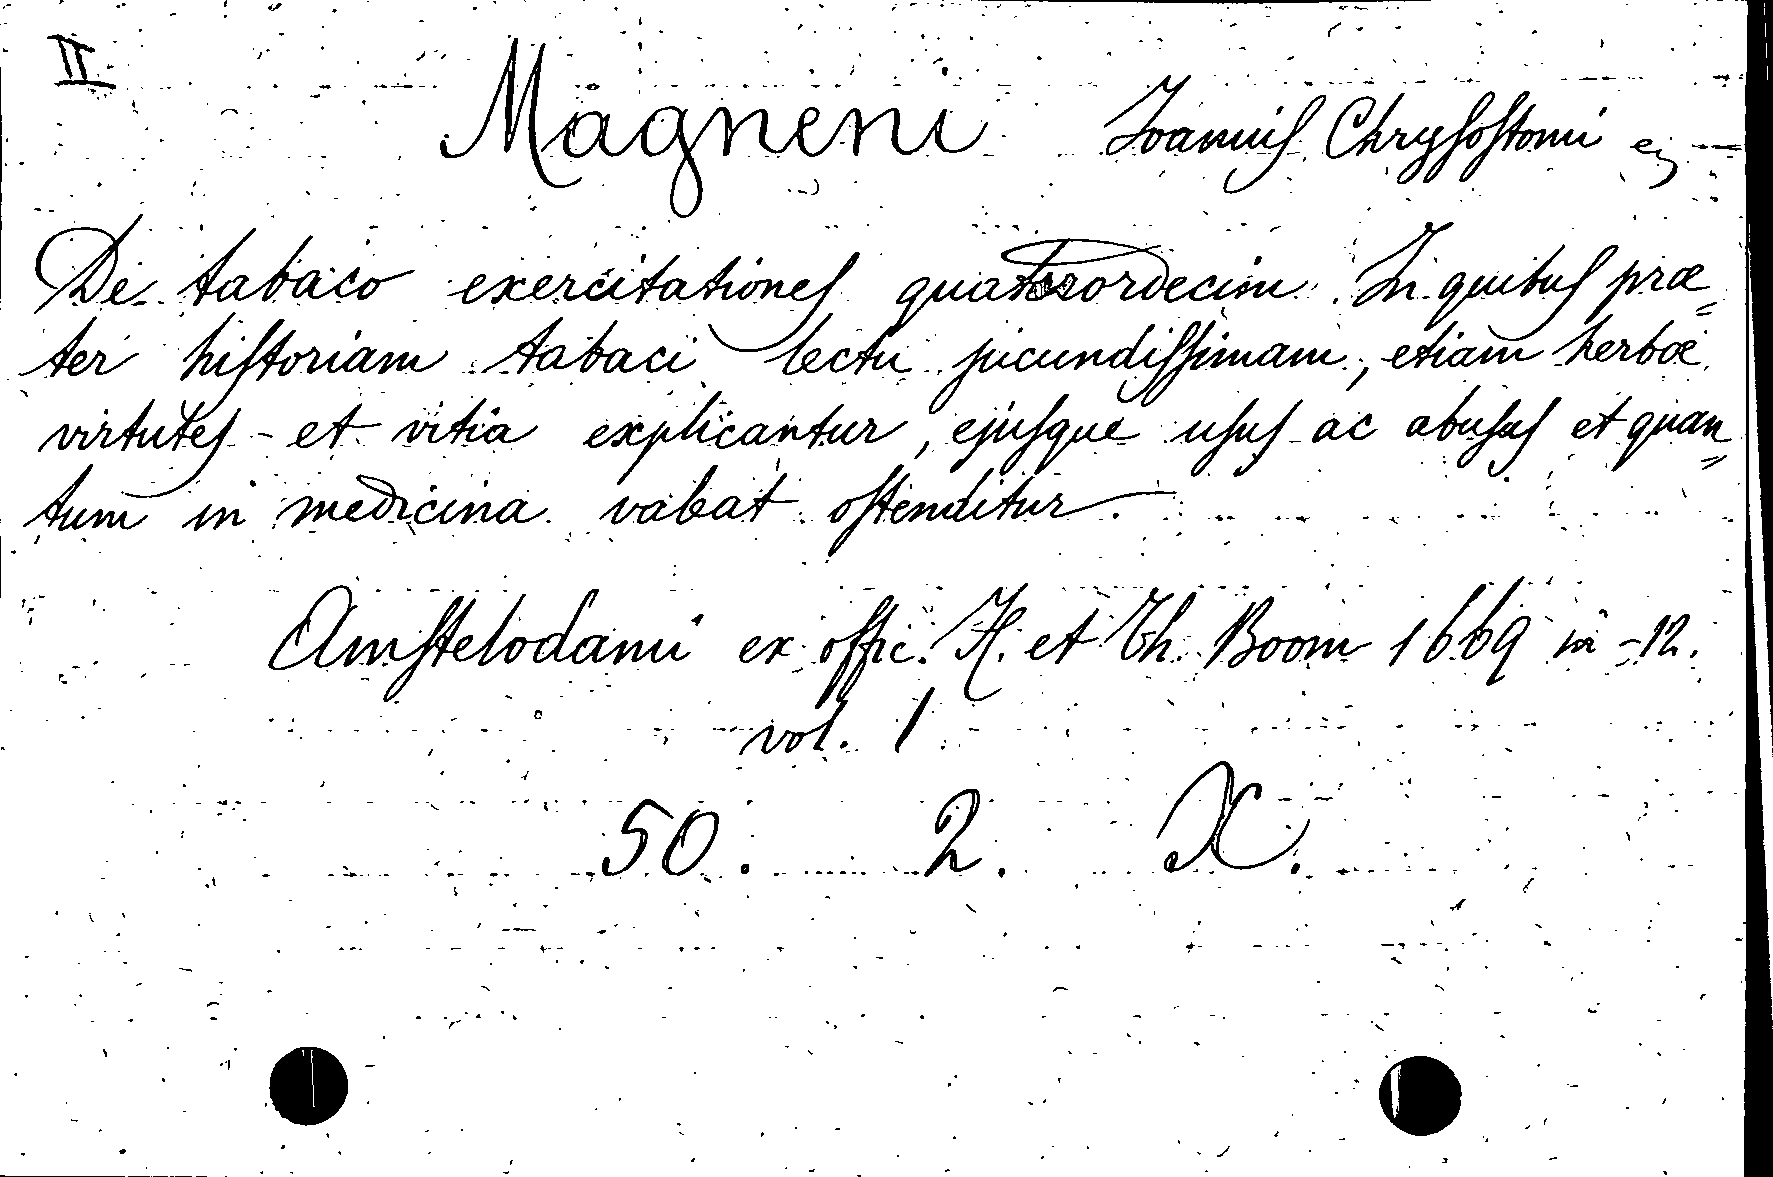 II
Magneni Joannis Chrysostomi
De tabaco exercitationes quatuordecim. In quibus præ=
ter historiam tabaci lectu jucundissimam, etiam herbæ
virtutes et vitia explicantur, ejusque usus ac abusus et quan=
tum in medicina valeat ostenditur.
Amstelodami ex offic. H. et Th. Boom 1669 in -12.
vol. 1
50. 2. X.